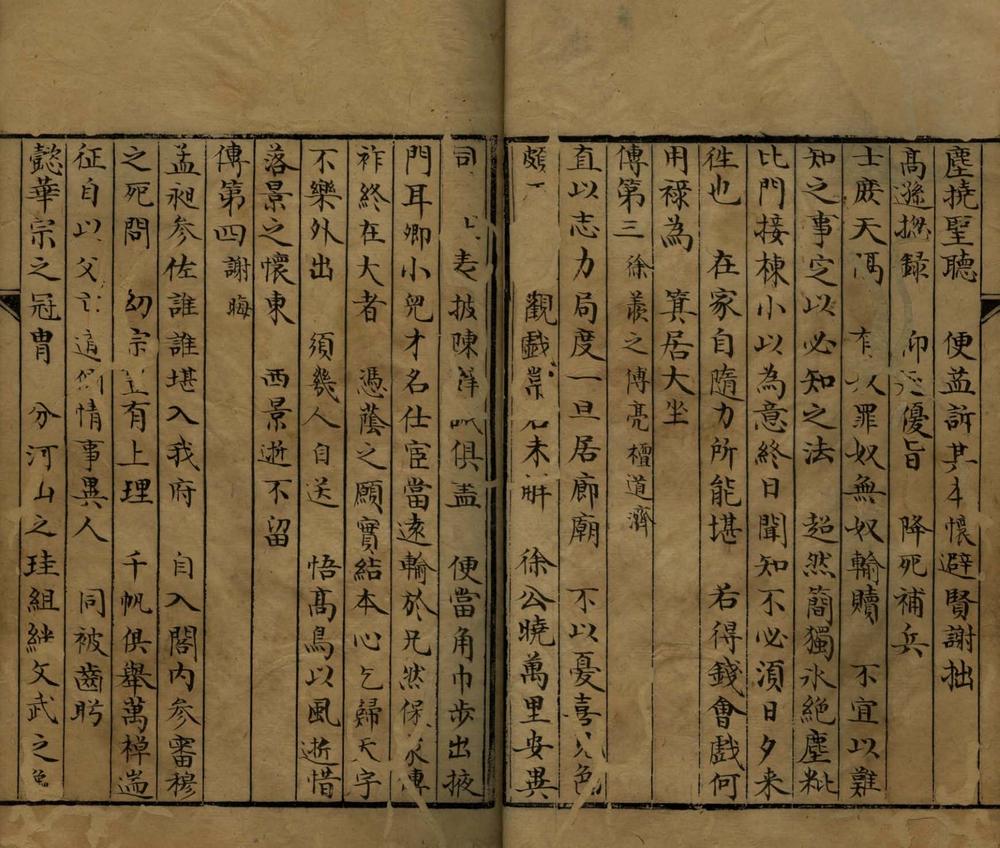 塵撓聖聽　便茲訴其　懷避賢謝拙
高遜撫録　仰　優旨　降死補兵
士庶天隔　有　罪奴無奴輸贖　不宜以難
知之事定以必知之法　超然簡獨永絶塵粃
比門接棟小以為意終日聞知不必須日夕来
徃也　在家自隨力所能堪　若得錢會戲何
用禄為　箕居大坐
傳第三徐羨之傅亮檀道濟
直以志力局度一旦居廊廟　不以憂喜見色
頗　觀戲常　未解　徐公曉萬里安異
司　表披陳　俱盡　便當角巾步出掖
門耳卿小兒才名仕宦當遠輸於兄然保　傳
祚終在大者　憑蔭之願實結本心乞歸天字
不樂外出　須幾人自送　悟髙鳥以風逝惜
落景之懷東　西景逝不留
傳第四謝晦
孟昶參佐誰誰堪入我府　自入閤内參審穆
之死問　幼宗　有上理　千帆俱舉萬棹遄
征自以父　情事異人　同被齒盻
懿華宗之冠冑　分河山之珪組紲文武之